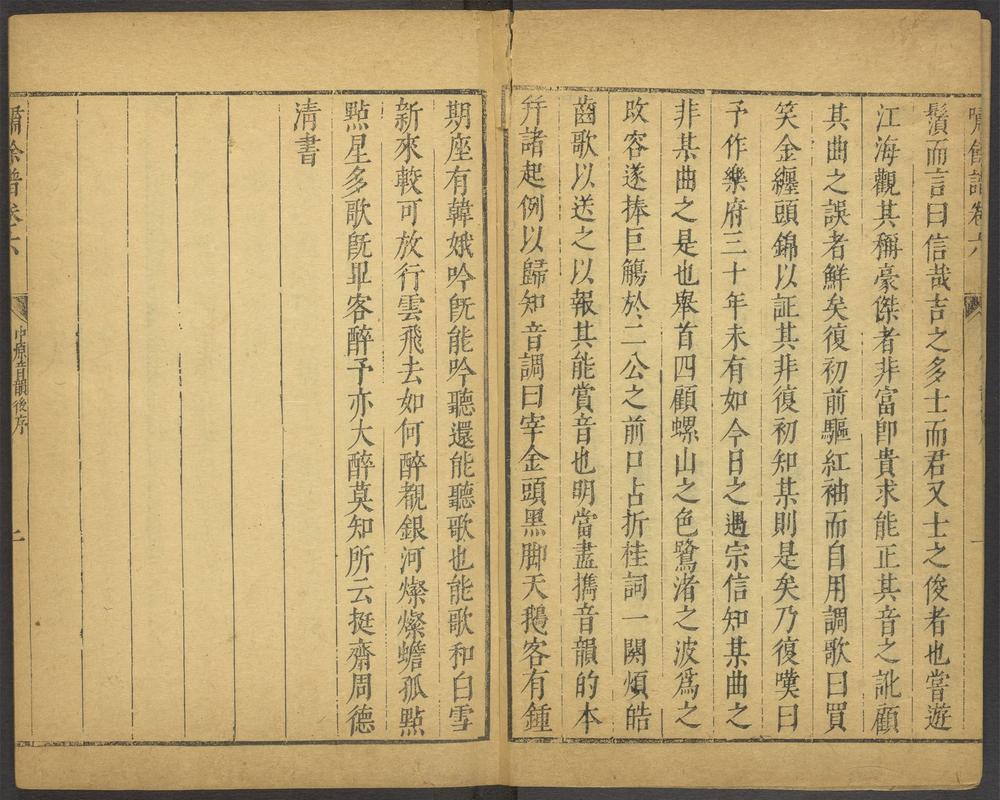 嘯餘譜卷六
一
鬚而言曰信哉吉之多士而君又士之俊者也嘗遊
江海觀其稱豪傑者非富卽貴求能正其音之訛顧
其曲之誤者鮮矣復初前驅紅袖而自用調歌曰買
笑金纏頭錦以証其非復初知某則是矣乃復嘆曰
予作樂府三十年未有如今日之遇宗信知某曲之
非某曲之是也舉首四顧螺山之色鷺渚之波爲之
改容遂捧巨觴於二公之前口占折桂詞一闋煩皓
齒歌以送之以報其能賞音也明當盡攜音韻的本
并諸起例以歸知音調曰宰金頭黑脚天鵝客有鍾
期座有韓娥吟旣能吟聽還能聽歌也能歌和白雪
新來較可放行雲飛去如何醉覩銀河燦燦蟾孤點
點星多歌旣畢客醉予亦大醉莫知所云挺齋周德
淸書
嘯餘譜卷六
中原音韻後序
二